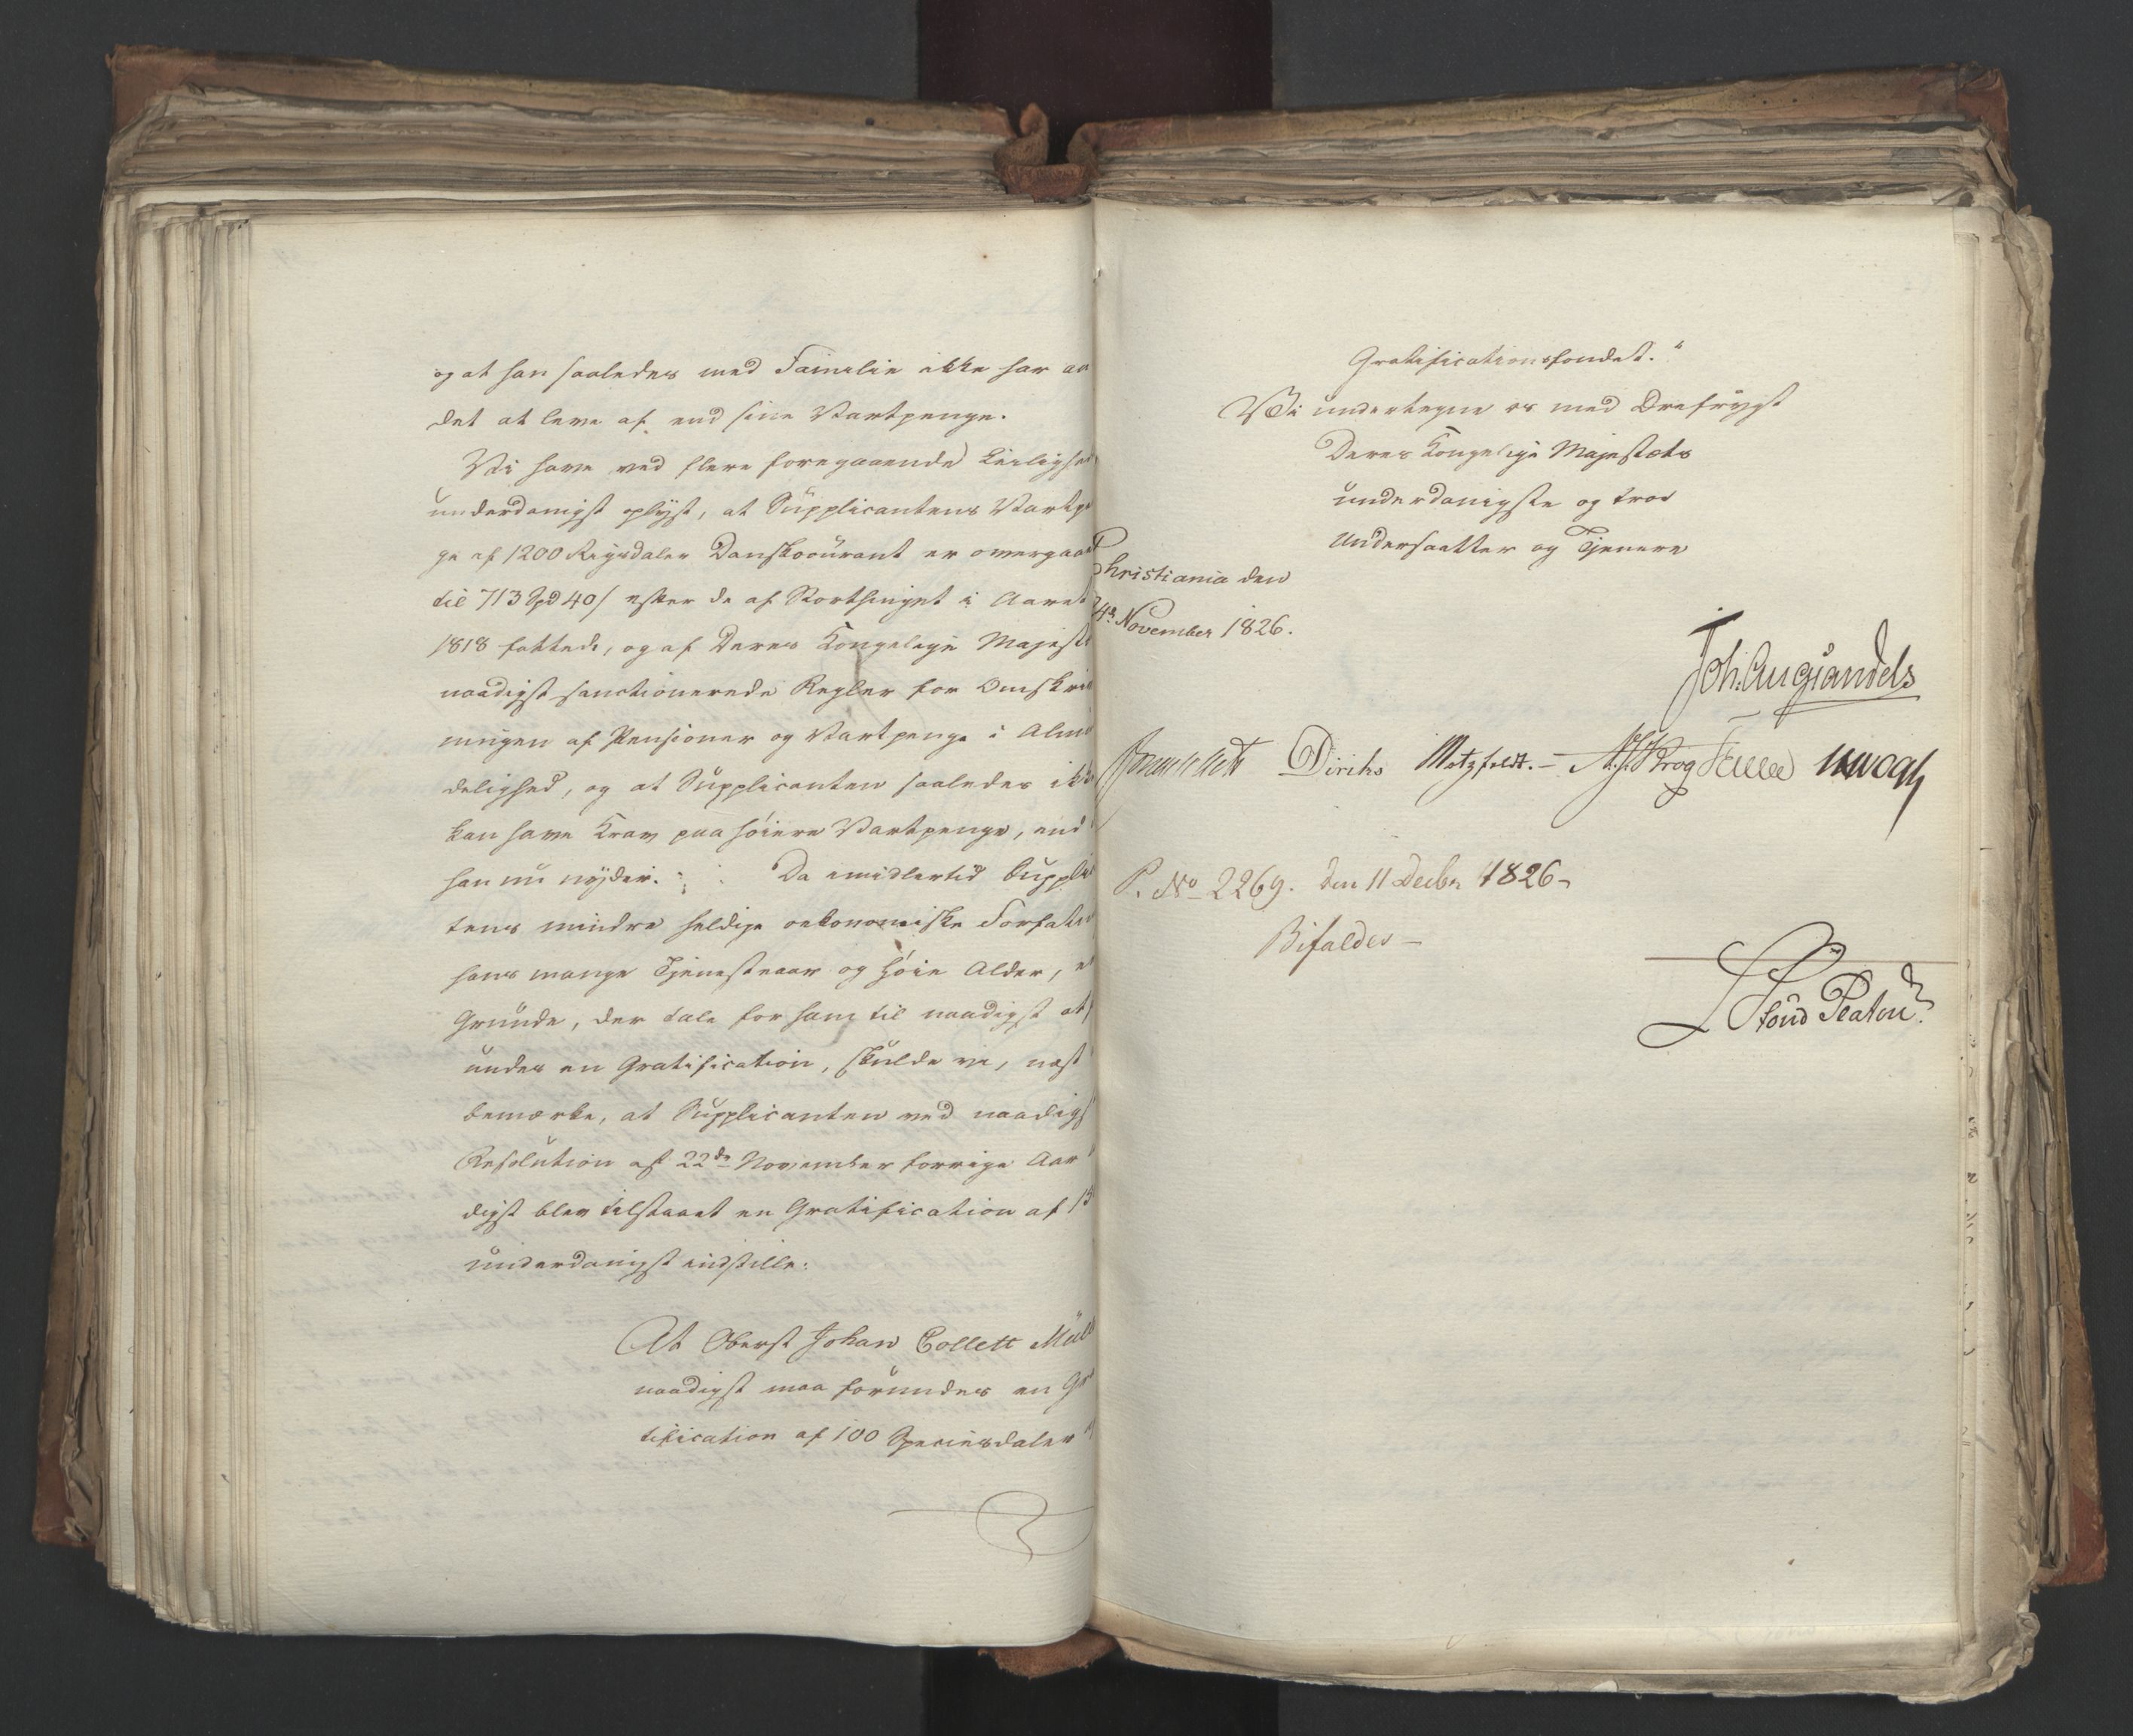 og at han saaledes med Familie ikke har an
det at leve af end sine Vartpenge.
Vi have ved flere foregaaende Leilighed
underdanigst oplyst, at Supplicantens Vartpe
ge af 1200 Rigsdaler Danskcourant er overgaaet
til 713 Spd 40/ efter de af Storthinget i Aaret
1818 fattede, og af Deres Kongelige Majestæt
naadigst sanctionerede Regler for Omskriv
ningen af Pensioner og Vartpenge i Almi
delighed, og at Supplicanten saaledes ikke
kan have Krav paa høiere Vartpenge, end
han nu nyder. Da imidlertid Supplic
tens mindre heldige oekonomiske Forfatn
hans mange Tjenesteaar og høie Alder, e
Grunde, der tale for ham til naadigst at
undes en Gratification, skulde vi, næst
bemærke, at Supplicanten ved naadigst
Resolution af 22de November forrige Aar
digst blev tilstaaet en Gratification af 15
underdanigst indstille:
At Oberst Johan Collett Müll
naadigst maa forundes en Gra
tification af 100 Speciesdaler
Gratificationsfondet."
Vi undertegne os med Ærefrygt
Deres Kongelige Majestæts
underdanigste og troe
Undersaatter og Tjenere
Christiania den
24de November 1826.
Joh. Aug Sandels
Jonas Collett Diriks Motzfeldt. Krog Fasting
P. No 2269. den 11 Decbr 1826
Bifaldes